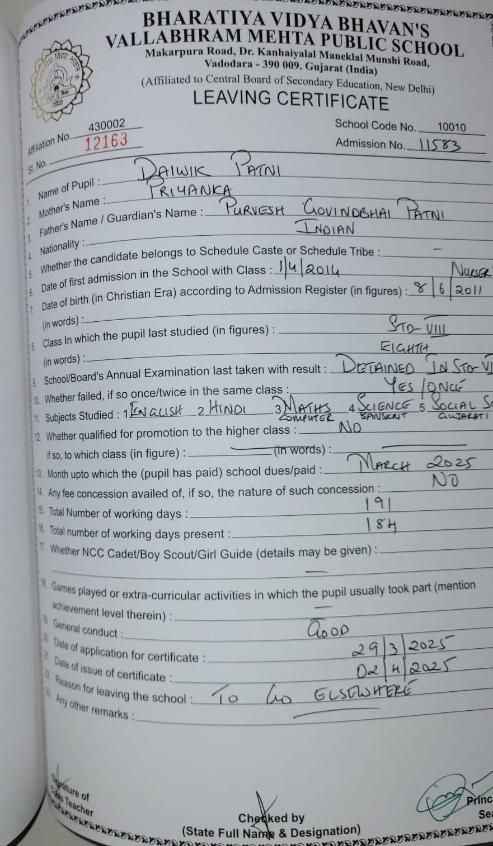 BHARATIYA VIDYA BHAVAN'S
VALLABHRAM MEHTA PUBLIC SCHOOL
Makarpura Road, Dr. Kanhaiyalal Maneklal Munshi Road,
Vadodara - 390 009. Gujarat (India)
(Affiliated to Central Board of Secondary Education, New Delhi)
LEAVING CERTIFICATE
Affiliation No. 430002 School Code No. 10010
Sl. No. 12163 Admission No. 11583
1. Name of Pupil : DAIWIK PATNI
2. Mother's Name : PRIYANKA
3. Father's Name / Guardian's Name : PURVESH GOVINDBHAI PATNI
4. Nationality : INDIAN
5. Whether the candidate belongs to Schedule Caste or Schedule Tribe : –
6. Date of first admission in the School with Class : 1/4/2014 NURSER
7. Date of birth (in Christian Era) according to Admission Register (in figures) : 8/6/2011
(in words) :
8. Class In which the pupil last studied (in figures) : STD-VIII
(in words) : EIGHTH
9. School/Board's Annual Examination last taken with result : DETAINED IN STD-VI
10. Whether failed, if so once/twice in the same class : YES/ONCE
11. Subjects Studied : 1 ENGLISH 2 HINDI 3 MATHS 4 SCIENCE 5 SOCIAL SC
COMPUTER SANSKRIT GUJARATI
12. Whether qualified for promotion to the higher class : NO
if so, to which class (in figure) : (in words) :
13. Month upto which the (pupil has paid) school dues/paid : MARCH 2025
14. Any fee concession availed of, if so, the nature of such concession : NO
15. Total Number of working days : 191
16. Total number of working days present : 184
17. Whether NCC Cadet/Boy Scout/Girl Guide (details may be given) :
—
18. Games played or extra-curricular activities in which the pupil usually took part (mention
achievement level therein) : —
19. General conduct : GOOD
20. Date of application for certificate : 29/3/2025
21. Date of issue of certificate : 02/4/2025
22. Reason for leaving the school : TO GO ELSEWHERE
23. Any other remarks :
Signature of
Teacher
Checked by
(State Full Name & Designation)
Princ
Sea